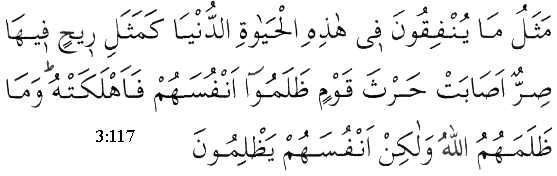 مَثَلُ مَا يُنْفِقُونَ فِي هٰذِهِ الْحَيٰوةِ الدُّنْيَا كَمَثَلِ رِيحٍ فِيهَا
صِرٌّ اَصَابَتْ حَرْثَ قَوْمٍ ظَلَمُوٓا اَنْفُسَهُمْ فَاَهْلَكَتْهُ ۜ وَمَا
ظَلَمَهُمُ اللهُ وَلٰكِنْ اَنْفُسَهُمْ يَظْلِمُونَ
3:117